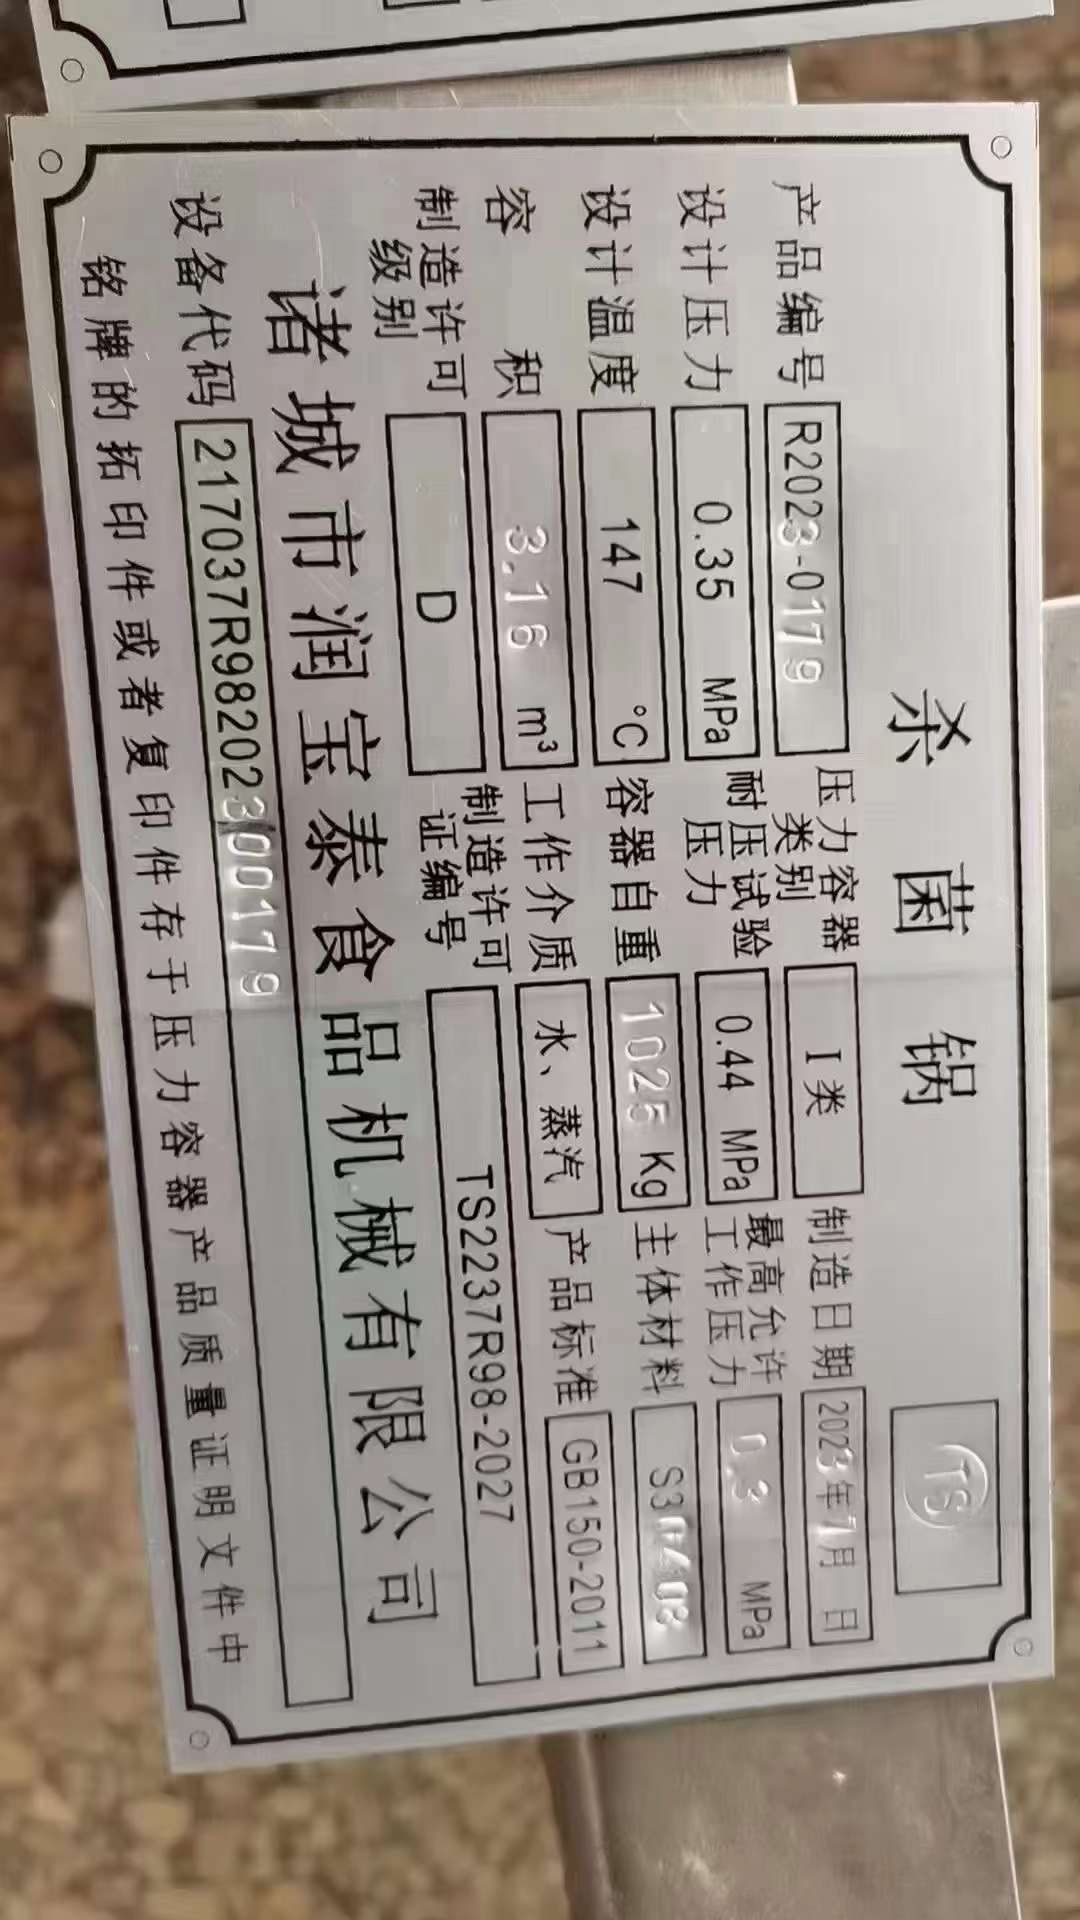 杀菌锅
TS
产品编号 R2023-0179 压力容器类别 I类 制造日期 2023年7月 日
设计压力 0.35 MPa 耐压试验压力 0.44 MPa 最高允许工作压力 0.3 MPa
设计温度 147 ℃ 容器自重 1025 Kg 主体材料 S30408
容积 3.16 m³ 工作介质 水、蒸汽 产品标准 GB150-2011
制造许可级别 D 制造许可证编号 TS2237R98-2027
诸城市润宝泰食品机械有限公司
设备代码 217037R98202300179
铭牌的拓印件或者复印件存于压力容器产品质量证明文件中